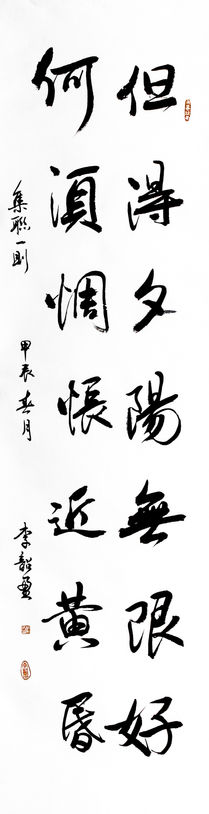 但得夕陽無限好
何須惆悵近黄昏
集聯一則
甲辰春月
李韶盈